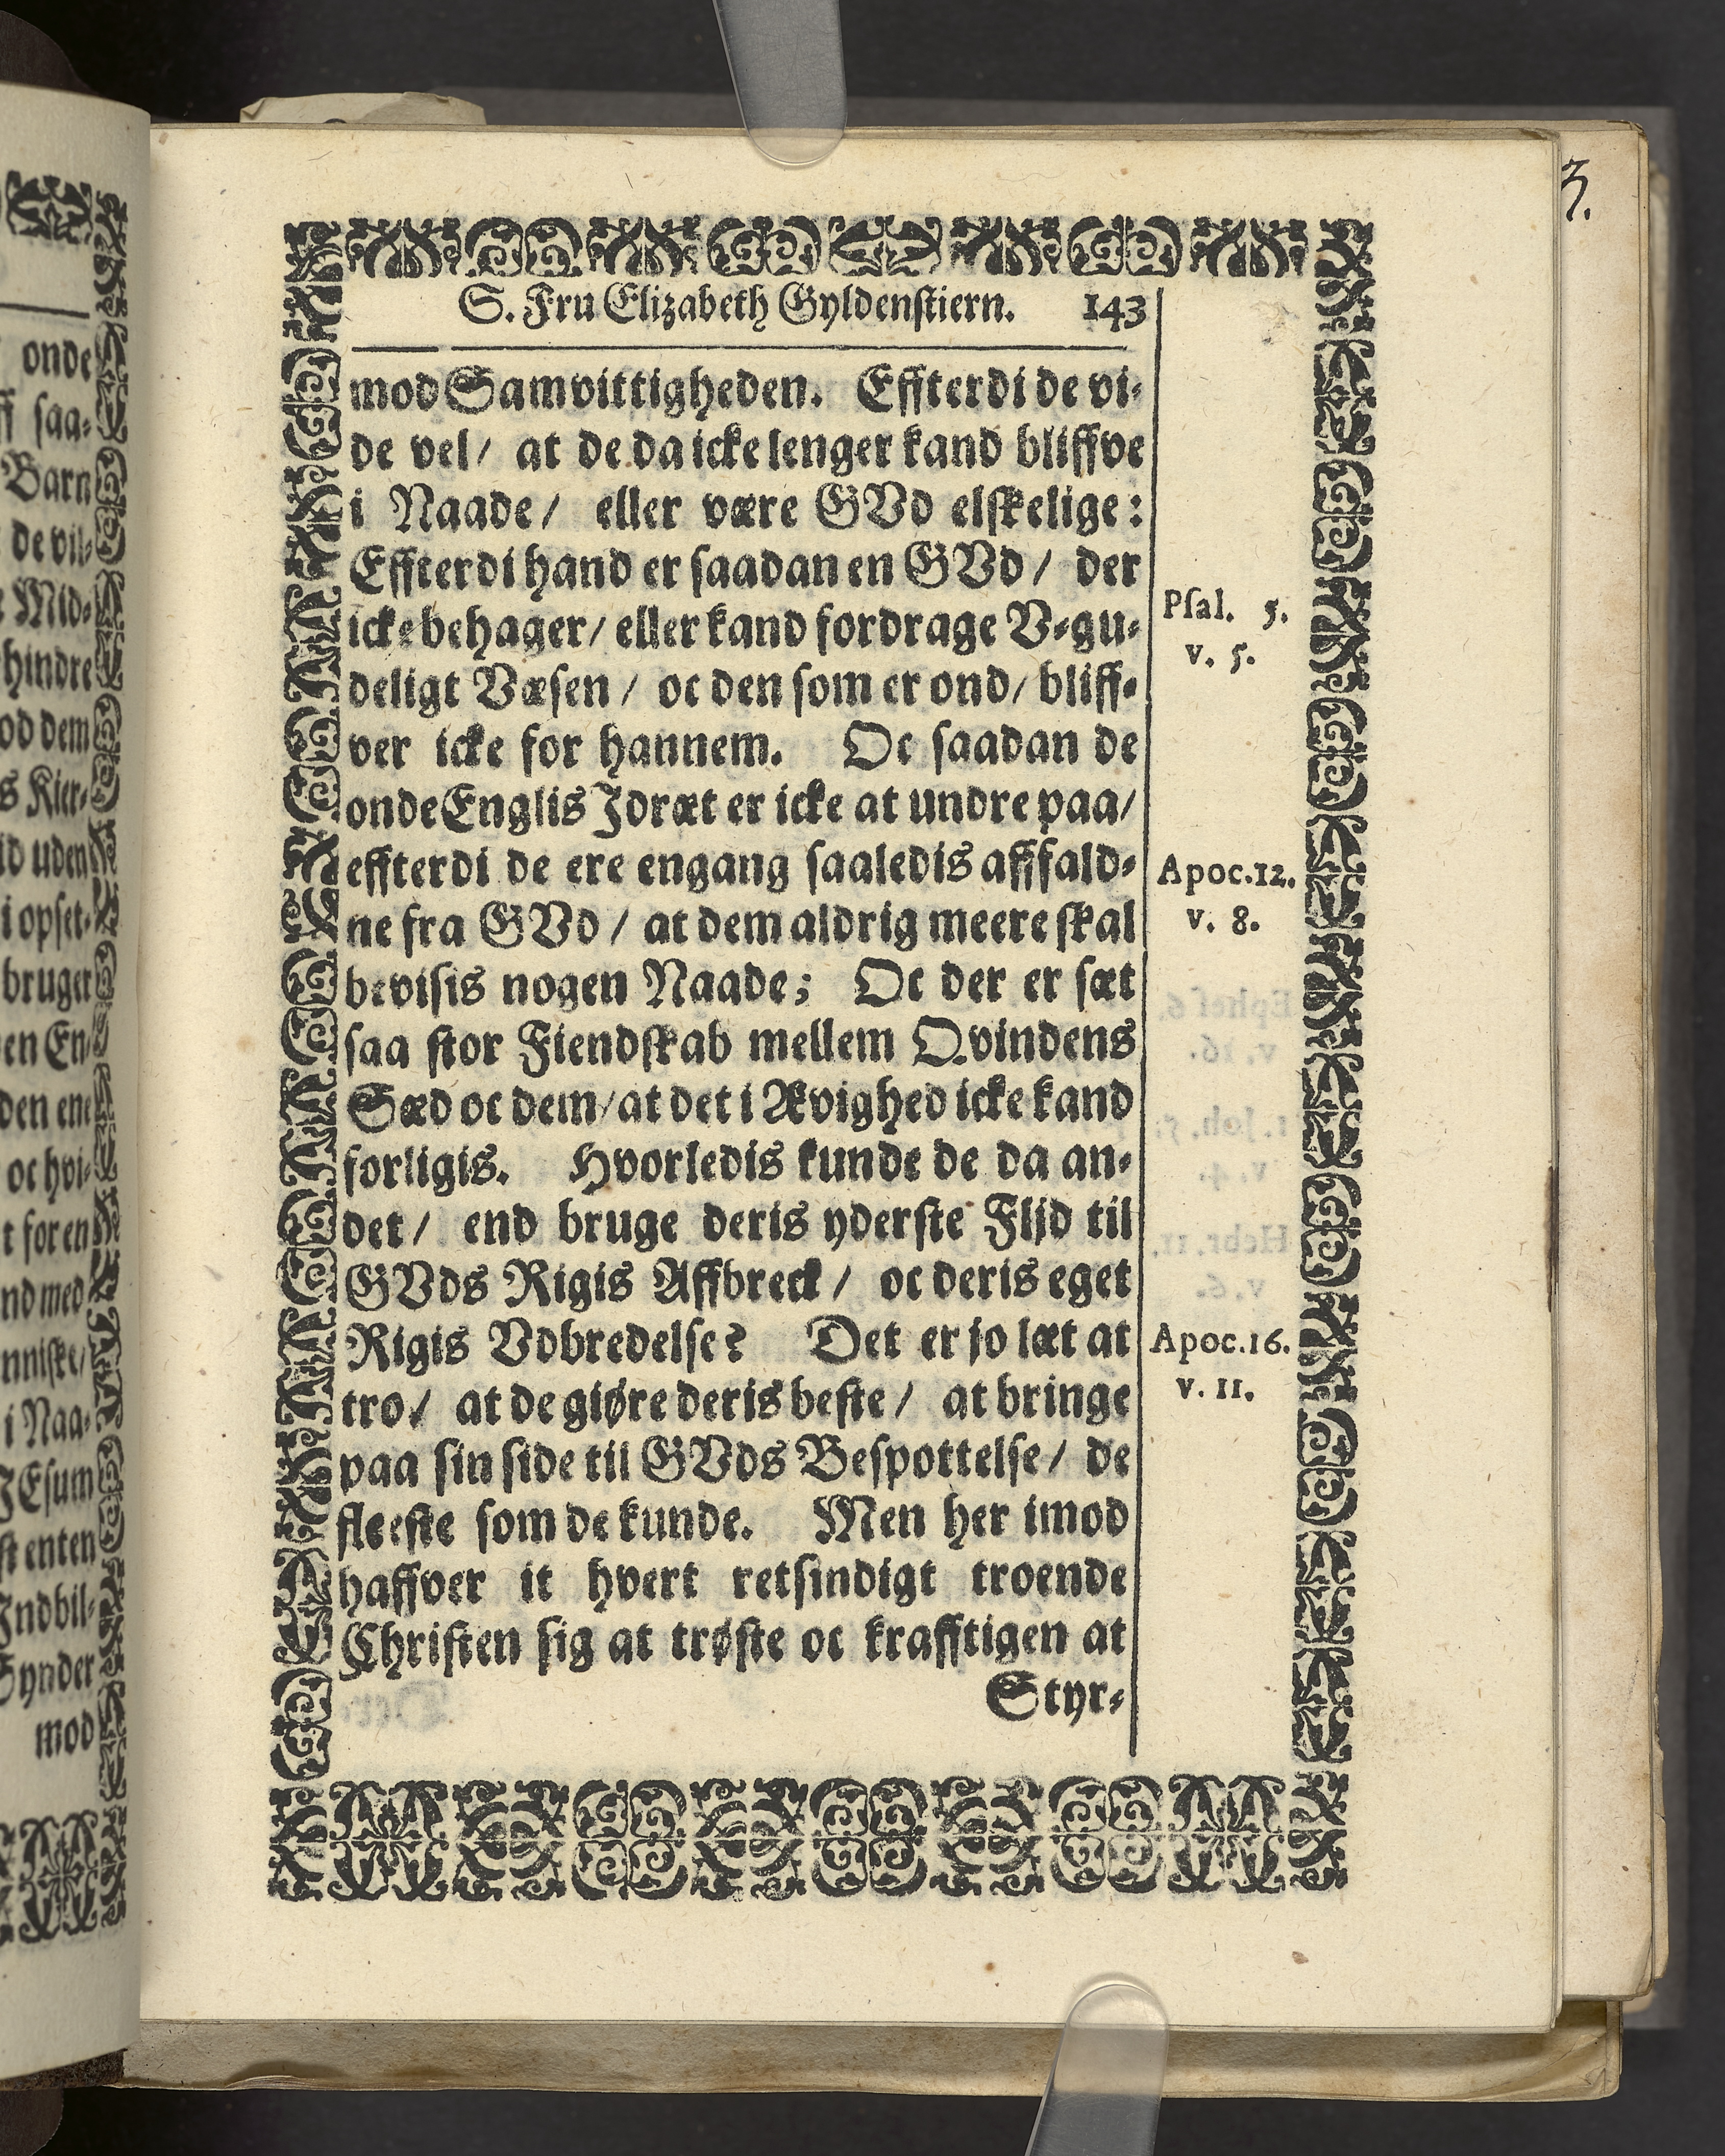 onde
ff saa-
Barn
de vil-
Mid-
hindre
od dem
s Kier-
ld uden
i opset-
bruger
en En-
den ene
oc hvi-
t for en
nd med
nniske/
i Naa-
JEsum
st enten
Jndbil-
Synder
mod
3.
S. Fru Elizabeth Gyldenstiern. 143
mod Samvittigheden. Effterdi de vi-
de vel/ at de da icke lenger kand bliffve
i Naade/ eller være GVd elskelige:
Effterdi hand er saadan en GVd/ der
icke behager/ eller kand fordrage V-gu-
deligt Væsen/ oc den som er ond/ bliff-
ver icke for hannem. Oc saadan de
onde Englis Jdræt er icke at undre paa/
effterdi de ere engang saaledis affald-
ne fra GVd/ at dem aldrig meere skal
bevisis nogen Naade; Oc der er sæt
saa stor Fiendskab mellem Qvindens
Sæd oc dem/ at det i Ævighed icke kand
forligis. Hvorledis kunde de da an-
det/ end bruge deris yderste Flid til
GVds Rigis Affbreck/ oc deris eget
Rigis Vdbredelse? Det er jo læt at
tro/ at de giøre deris beste/ at bringe
paa sin side til GVds Bespottelse/ de
fleeste som de kunde. Men her imod
haffver it hvert retsindigt troende
Christen sig at trøste oc krafftigen at
Styr-
Psal. 5.
v. 5.
Apoc.12.
v. 8.
Apoc.16.
v. 11.